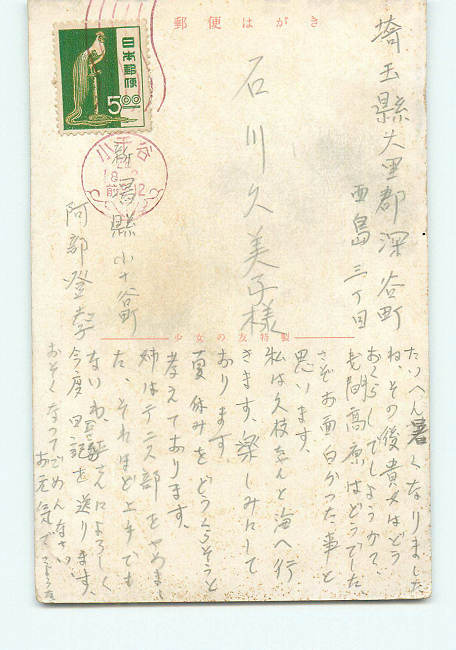 郵便はがき
日本郵便
5.00
小千谷
埼玉縣大里郡深谷町
西島 三丁目
石川久美子様
新潟縣小千谷町
阿部登
少女の友特製
たいへん暑くなりました
ね、その後貴女はどう
おくらしでしょうか。
高原はどうでした
さぞお面白かった事と
思います。
私は久枝さんと海へ行
きます、楽しみにして
おります。
夏休みをどうくらそうと
考えております。
姉はテニス部をやめまし
た、それほど上手でも
ないわ、さんによろしく
今度日記を送ります、
おそくなってごめんなさい、
お元気で